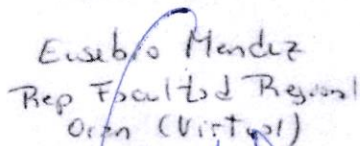 Eusebio Mendez
Rep Facultad Regional
Oran (Virtual)